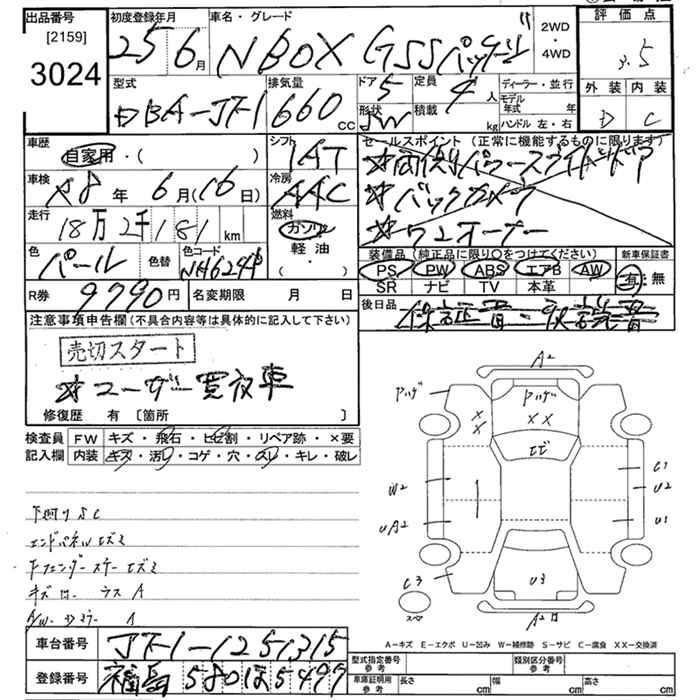 出品番号 初度登録年月 車名・グレード 評価点
[2159] 25 6月 NBOX GSSパッケージ 2WD・4WD 3.5
3024
型式 排気量 ドア 5 定員 4人 ディーラー・並行 外装 内装
DBA-JF1 660cc 形状 5W 積載 kg モデル年式 年 D C
ハンドル 左・右
車歴 シフト セールスポイント (正常に機能するものに限ります)
自家用・( ) 1AT ☆両側パワースライドドア
車検 R8年 6月(16日) 冷房 AAC ☆バックカメラ
走行 18万2千181km 燃料 ガソリン ☆ワンオーナー
軽油
・( )
色 パール 色替 色コード NH624P 装備品 (純正品に限り○をつけてください) 新車保証書
PS PW ABS エアB AW 有・無
R券 9790円 名変期限 月 日 SR ナビ TV 本革
注意事項申告欄(不具合内容等は具体的に記入して下さい) 後日品 保証書・取説書
売切スタート
☆ユーザー買取車
修復歴 有 〔箇所 〕
検査員 FW キズ・飛石・ヒビ割・リペア跡・×要
記入欄 内装 キズ・汚れ・コゲ・穴・スレ・キレ・破レ
A2
ヤハゲ ヤハゲ
XX XX
エビ
W2 C1
U2
UA2 U1
C3 U3
スペア A2
下回りSC
エンドパネルエズミ
Fフェンダーステーエズミ
キズ 凹 ラス A
A/W
A=キズ E=エクボ U=凹み W=補修跡 S=サビ C=腐食 XX=交換済
車台番号 JF1-1251315
型式指定番号 参考 類別区分番号 参考
登録番号 福島 580 ほ 5497
車庫証明用 参考 長さ cm 幅 cm 高さ cm